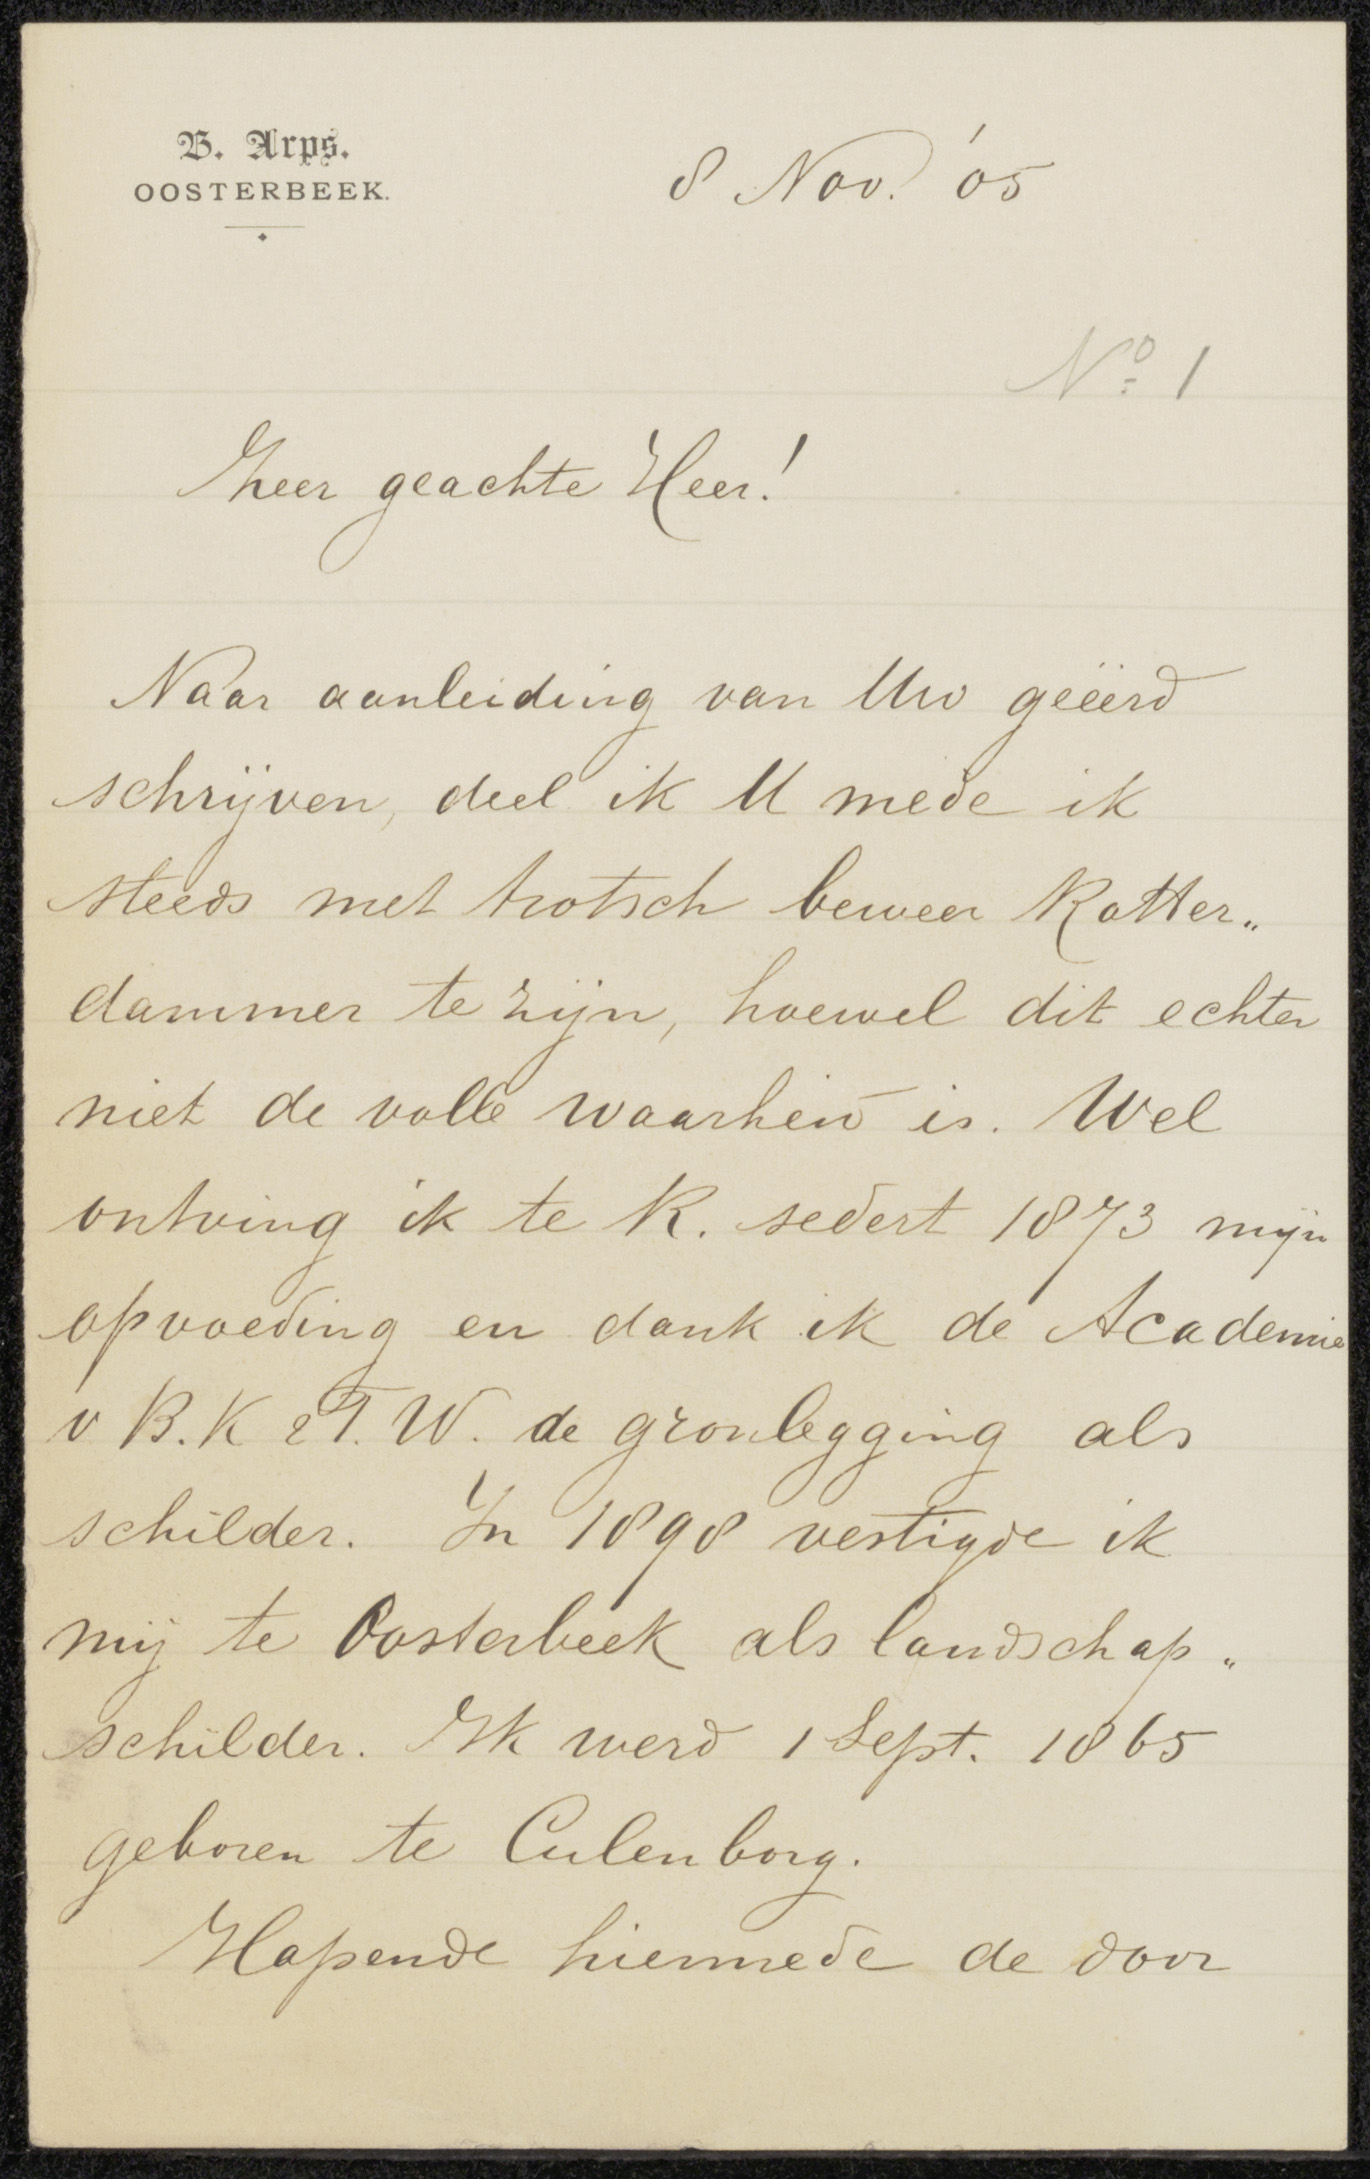 B. Arps.
OOSTERBEEK.
8 Nov. '05
No. 1
Zeer geachte Heer!
Naar aanleiding van Uw geëerd
schrijven, deel ik U mede ik
steeds met trotsch beweer Rotter„
dammer te zijn, hoewel dit echter
niet de volle waarheid is. Wel
ontving ik te R. sedert 1873 mijn
opvoeding en dank ik de Academie
v B.K & T.W. de gronlegging als
schilder. In 1898 vestigde ik
mij te Oosterbeek als landschap„
schilder. Ik werd 1 Sept. 1865
geboren te Culenborg.
Hopende hiermede de door